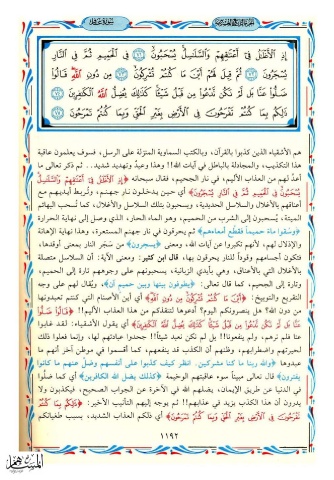 إِذِ الْأَغْلَالُ فِي أَعْنَاقِهِمْ وَالسَّلَاسِلُ يُسْحَبُونَ ۝ فِي الْحَمِيمِ ثُمَّ فِي النَّارِ
يُسْجَرُونَ ۝ ثُمَّ قِيلَ لَهُمْ أَيْنَ مَا كُنْتُمْ تُشْرِكُونَ ۝ مِنْ دُونِ اللَّهِ قَالُوا
ضَلُّوا عَنَّا بَلْ لَمْ نَكُنْ نَدْعُوا مِنْ قَبْلُ شَيْئًا كَذَلِكَ يُضِلُّ اللَّهُ الْكَافِرِينَ ۝
ذَلِكُمْ بِمَا كُنْتُمْ تَفْرَحُونَ فِي الْأَرْضِ بِغَيْرِ الْحَقِّ وَبِمَا كُنْتُمْ تَمْرَحُونَ ۝
هم الأشقياء الذين كذبوا بالقرآن، وبالكتب السماوية المنزلة على الرسل، فسوف يعلمون عاقبة
هذا التكذيب، والمجادلة بالباطل في آيات الله!! وهذا وعيدٌ وتهديد شديد.. ثم ذكر تعالى ما
أعدَّ لهم من العذاب الأليم، في نار الجحيم، فقال سبحانه ﴿إِذِ الْأَغْلَالُ فِي أَعْنَاقِهِمْ وَالسَّلَاسِلُ
يُسْحَبُونَ فِي الْحَمِيمِ ثُمَّ فِي النَّارِ يُسْجَرُونَ﴾ أي حين يدخلون نار جهنم، وتُربط أيديهم مع
أعناقهم بالأغلال والسلاسل الحديدية، ويسحبون بتلك السلاسل والأغلال، كما تُسحب البهائم
الميتة، يُسحبون إلى الشرب من الحميم، وهو الماء الحار، الذي وصل إلى نهاية الحرارة
﴿وسُقوا ماءً حميماً فقطَّع أمعاءهم﴾ ثم يحرقون في نار جهنم المستعرة، وهذا نهاية الإهانة
والإذلال لهم، لأنهم تكبروا عن آيات الله، ومعنى ﴿يسجرون﴾ من سَجَر النار بمعنى أوقدها،
فتكون أجسامهم وقوداً للنار يحرقون بها، قال ابن كثير: ومعنى الآية: أن السلاسل متصلة
بالأغلال التي بالأعناق، وهي بأيدي الزبانية، يسحبونهم على وجوههم تارة إلى الحميم،
وتارة إلى الجحيم، كما قال تعالى: ﴿يطوفون بينها وبين حميم آن﴾، ويُقال لهم على وجه
التقريع والتوبيخ: ﴿أَيْنَ مَا كُنْتُمْ تُشْرِكُونَ مِنْ دُونِ اللَّهِ﴾ أي أين الأصنام التي كنتم تعبدونها
من دون الله؟ هل ينصرونكم اليوم؟ ادعوها لتنقذكم من هذا العذاب الأليم!! ﴿قَالُوا ضَلُّوا
عَنَّا بَل لَّمْ نَكُنْ نَدْعُوا مِنْ قَبْلُ شَيْئًا كَذَلِكَ يُضِلُّ اللَّهُ الْكَافِرِينَ﴾ أي يقول الأشقياء: لقد غابوا
عنا فلم نرهم، ولم ينفعونا!! بل لم نكن نعبد شيئاً!! جحدوا عبادتهم لها، وإنما فعلوا ذلك
لحيرتهم واضطرابهم، وظنهم أن الكذب قد ينفعهم، كما أقسموا في موطن آخر أنهم ما
عبدوها ﴿والله ربنا ما كنا مشركين. انظر كيف كذبوا على أنفسهم وضلَّ عنهم ما كانوا
يفترون﴾ قال تعالى مبيناً سوء عاقبتهم الوخيمة ﴿كذلك يضل الله الكافرين﴾ أي كما ضلُّوا
في الدنيا عن طريق الإيمان، يضلهم الله في الآخرة عن الجواب الصحيح، فيكذبون ولا
يدرون أن هذا الكذب يزيد في عذابهم!! ثم يوجه إليهم التأنيب الأخير: ﴿ذَلِكُمْ بِمَا كُنْتُمْ
تَفْرَحُونَ فِي الْأَرْضِ بِغَيْرِ الْحَقِّ وَبِمَا كُنْتُمْ تَمْرَحُونَ﴾ أي ذلكم العذاب الشديد، بسبب طغيانكم
١١٩٢